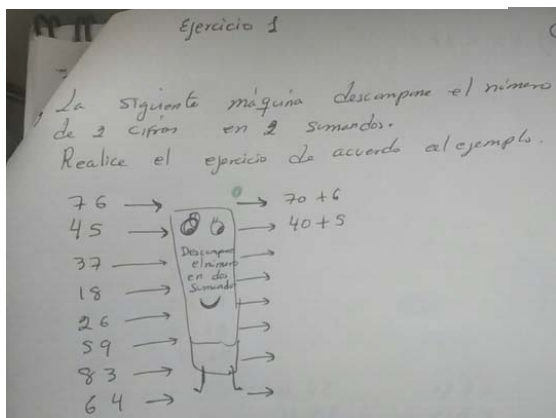 Ejercicio 1
La siguiente máquina descompone el número
de 2 cifras en 2 sumandos.
Realice el ejercicio de acuerdo al ejemplo.
76 → → 70 + 6
45 → → 40 + 5
37 → →
18 → →
26 → →
59 → →
83 → →
64 → →
Descompone
el número
en dos
Sumandos